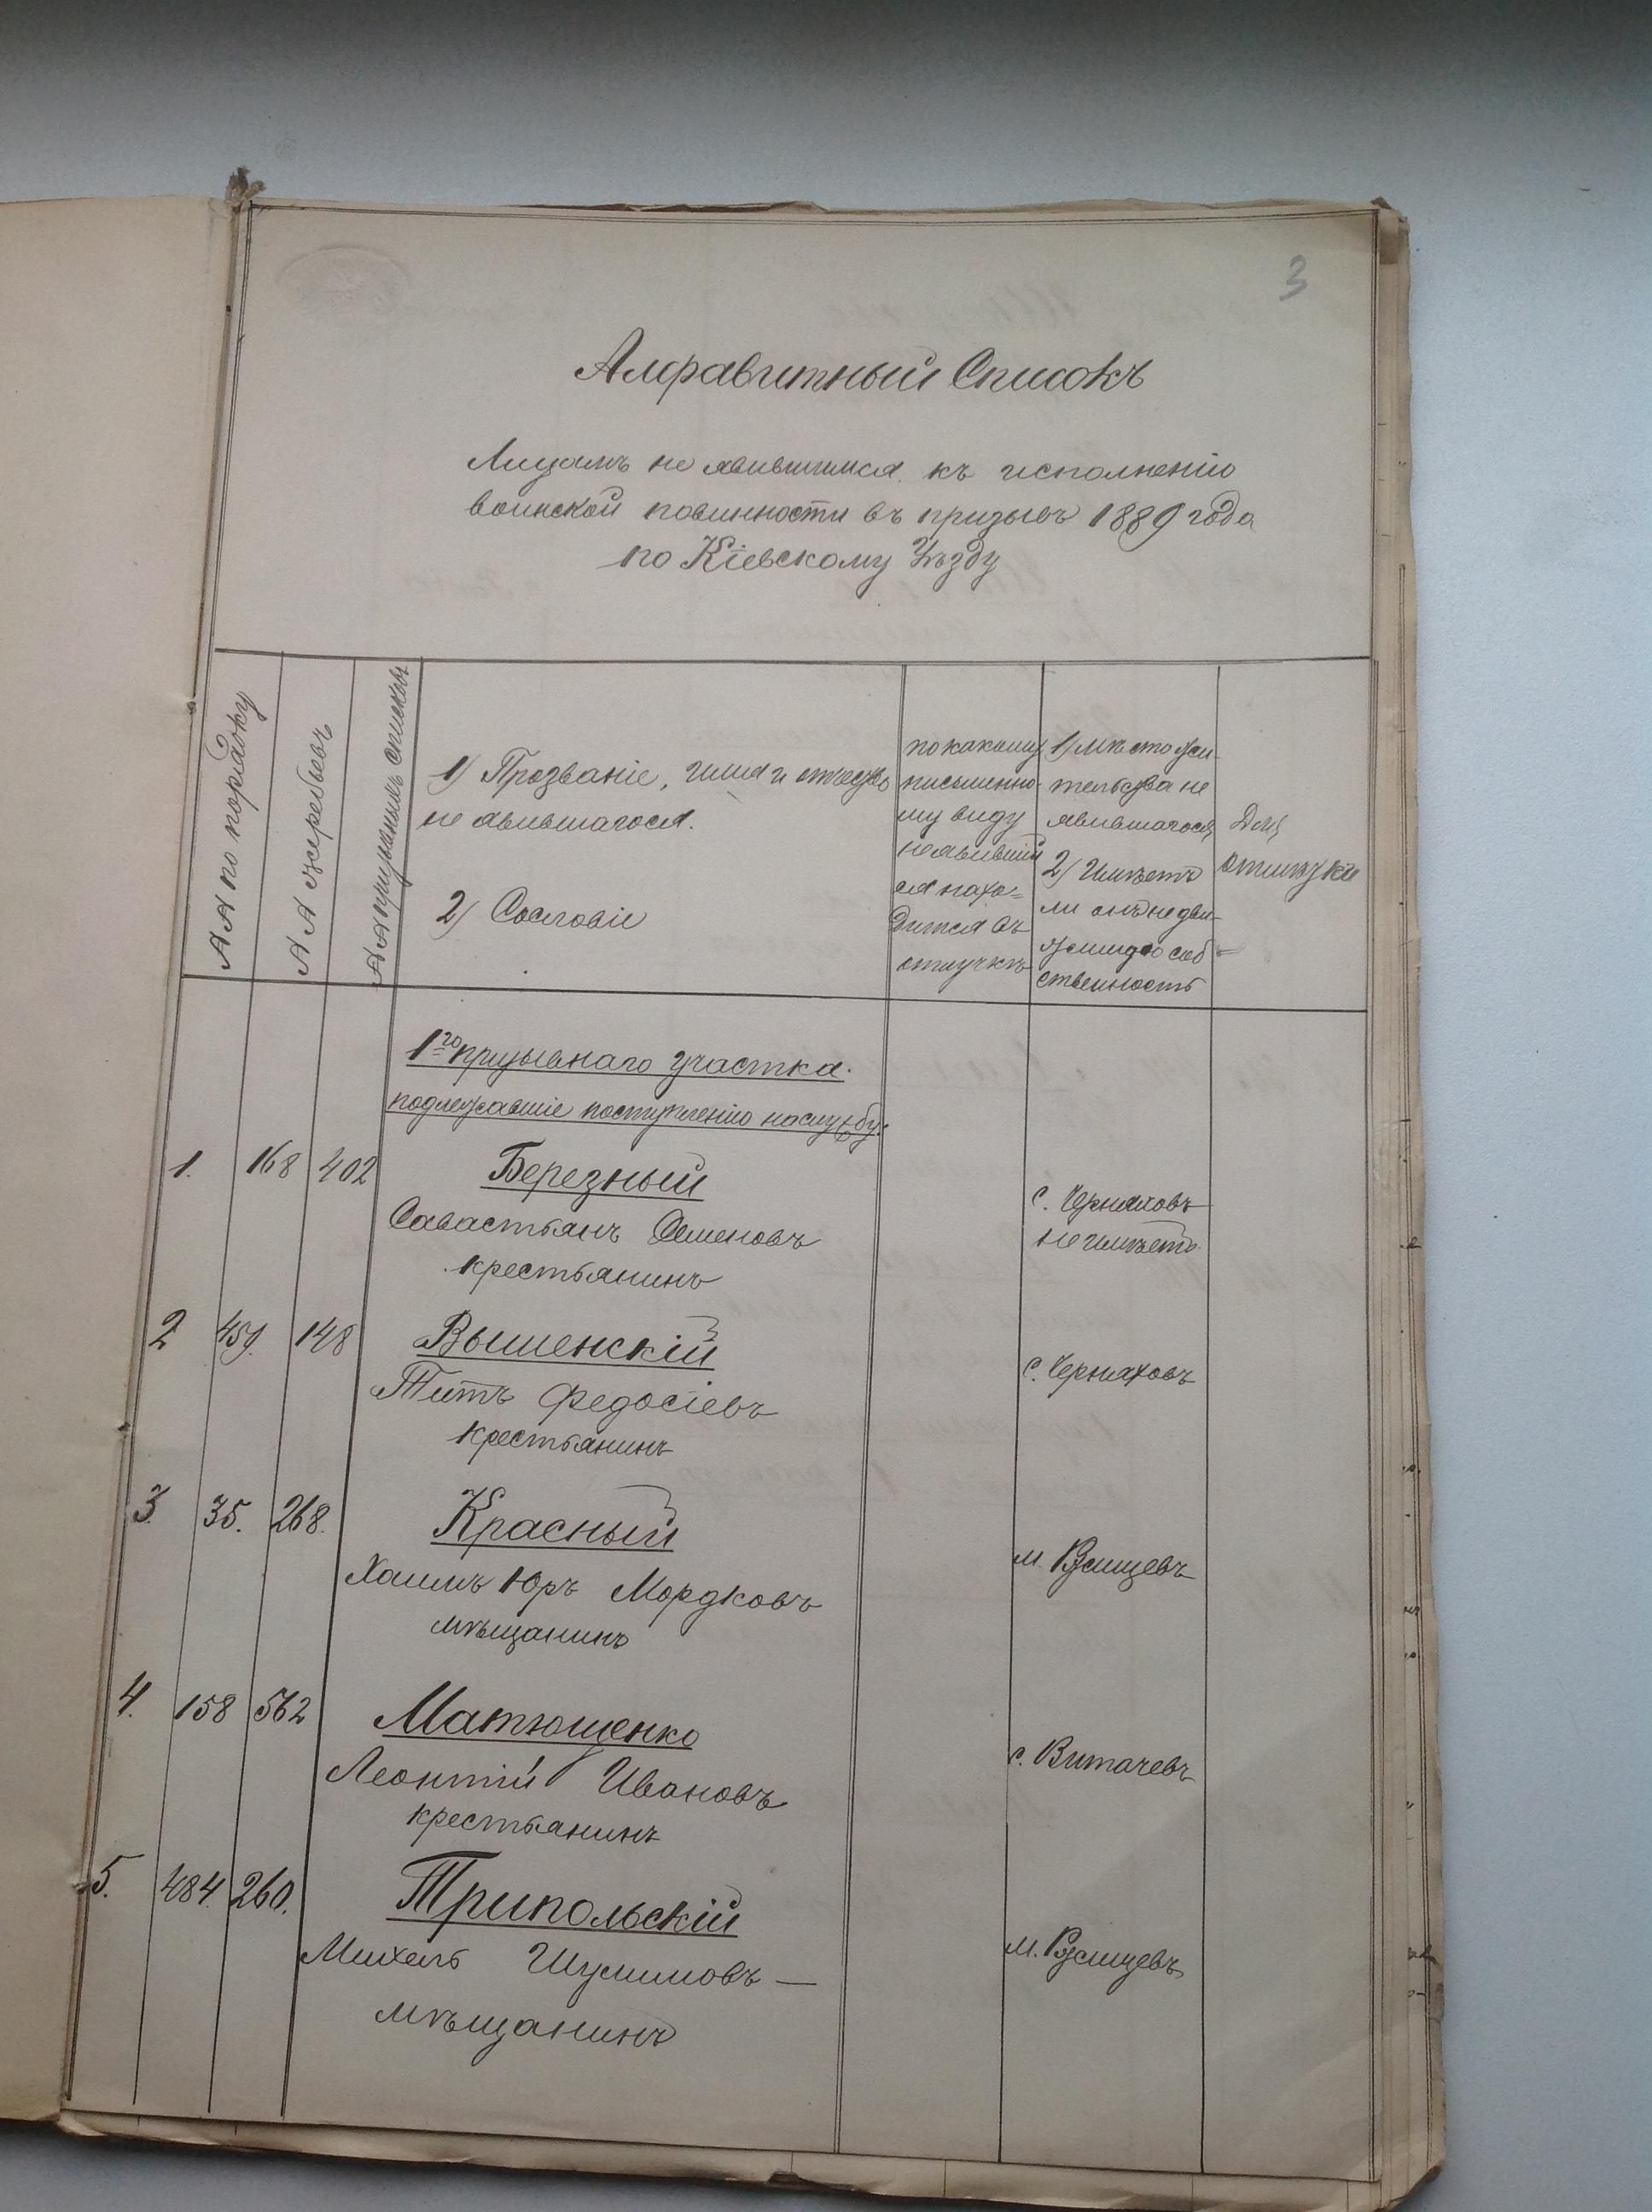 3
Алфавитный Списокъ
Лицамъ не явившимся къ исполненію
воинской повинности въ призывъ 1889 года
по Кіевскому Уѣзду
№№ по порядку
№№ жеребьевъ
№№ призывныхъ списковъ
1) Прозваніе, имя и отчество
не явившагося.
2) Сословіе
по какому
письменно-
му виду
неявившій
ся нахо=
дится въ
отлучкѣ
1) Мѣсто жи-
тельства не
явившагося
2) Имѣетъ
ли онъ недви-
жимую соб=
ственность
Для
отмѣтки
1го призывнаго участка.
подлежавшіе поступленію на службу:
1. 168 402 Березный
Савастьянъ Семеновъ
крестьянинъ
с. Черняховъ
не имѣетъ
2 459. 148 Вышенскій
Титъ Федосіевъ
крестьянинъ
с. Черняховъ
3. 35. 268. Красный
Хаимъ Юръ Мордковъ
мѣщанинъ
м. Ржищевъ
4. 158 562 Матюшенко
Леонтій Ивановъ
крестьянинъ
с. Витачевъ
5. 484. 260. Трипольскій
Михель Шулимовъ —
мѣщанинъ
м. Ржищевъ